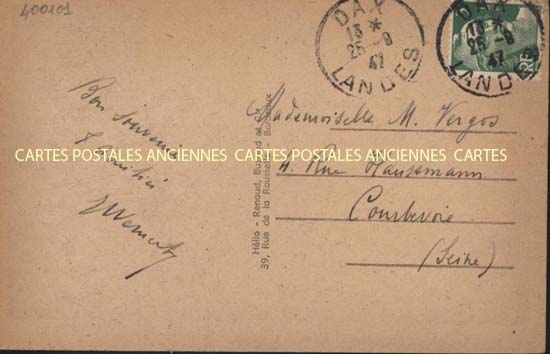 400101
DAX
13 *
26-9
47
LANDES
DAX
13 *
26-9
47
LANDES
RF
Bon Souvenir
Mademoiselle M. Vergos
4. Rue Haussmann
Courbevoie
(Seine)
CARTES POSTALES ANCIENNES CARTES POSTALES ANCIENNES CARTES
Hélio - Renaud,
39, Rue de la Rousselle - Bordeaux